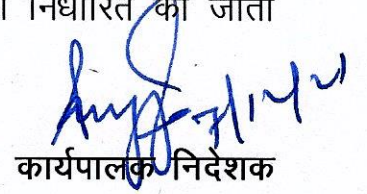 निर्धारित की जाती
कार्यपालक निदेशक